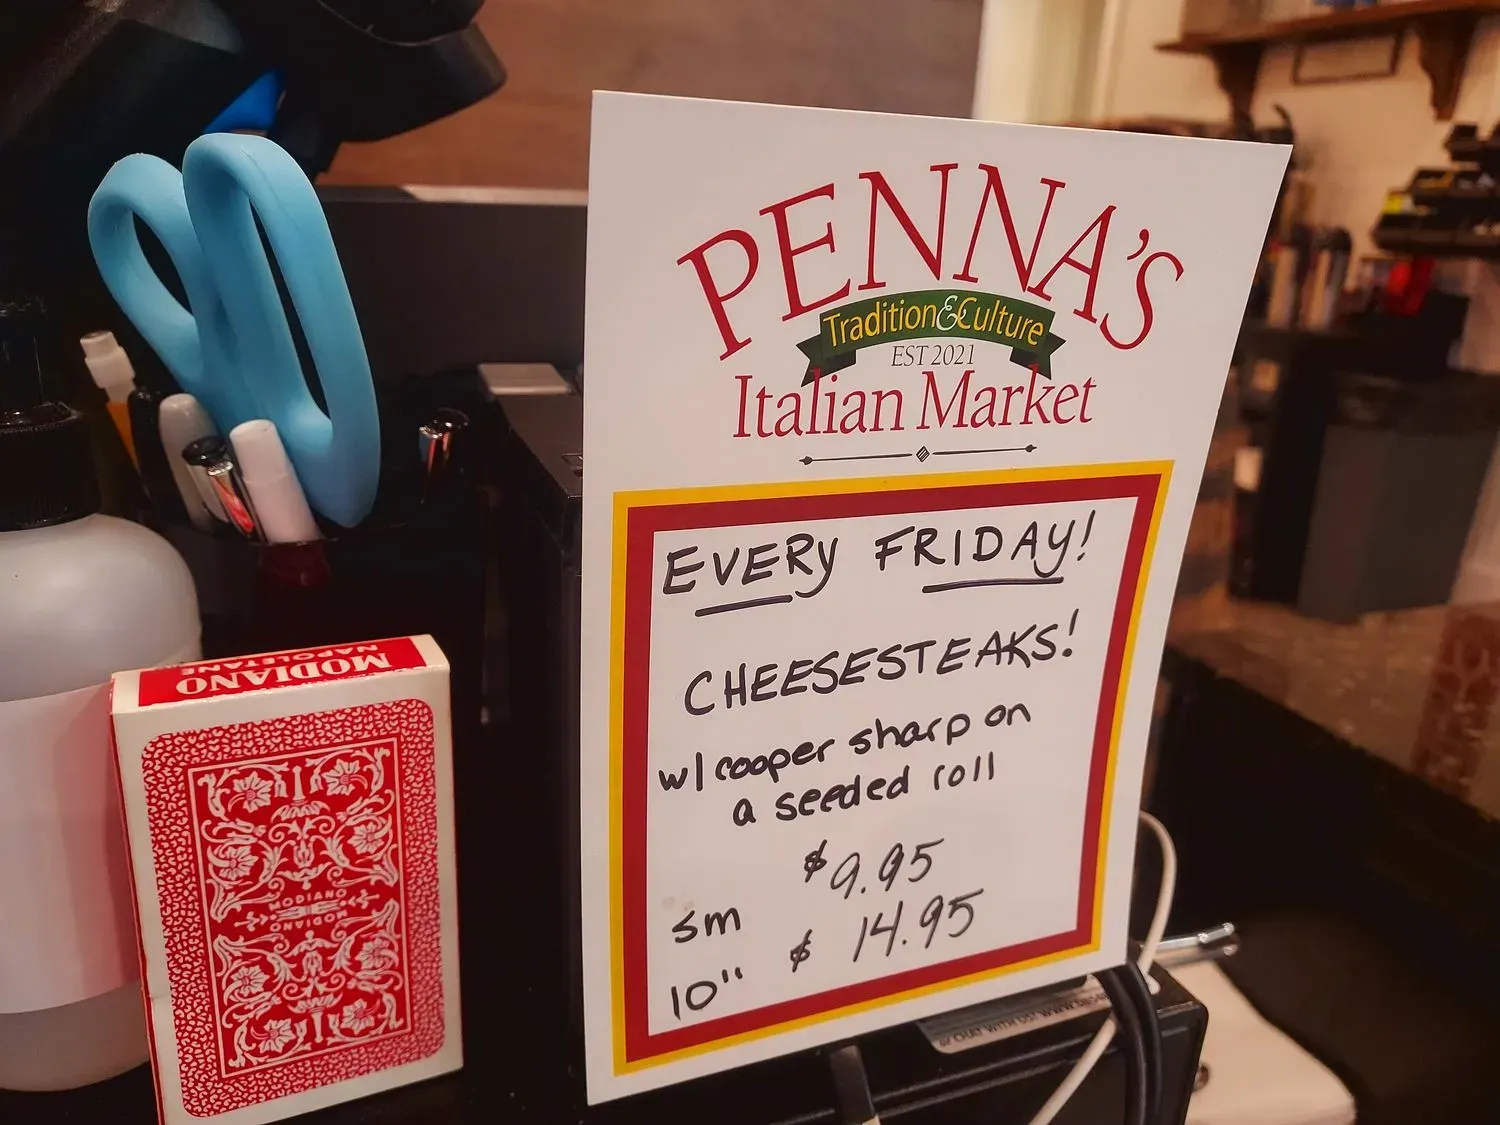 PENNA'S
Tradition & Culture
EST 2021
Italian Market
EVERY FRIDAY!
CHEESESTEAKS!
w/ cooper sharp on
a seeded roll
sm $9.95
10" $14.95
MODIANO
NAPOLETANE
MODIANO
MODIANO